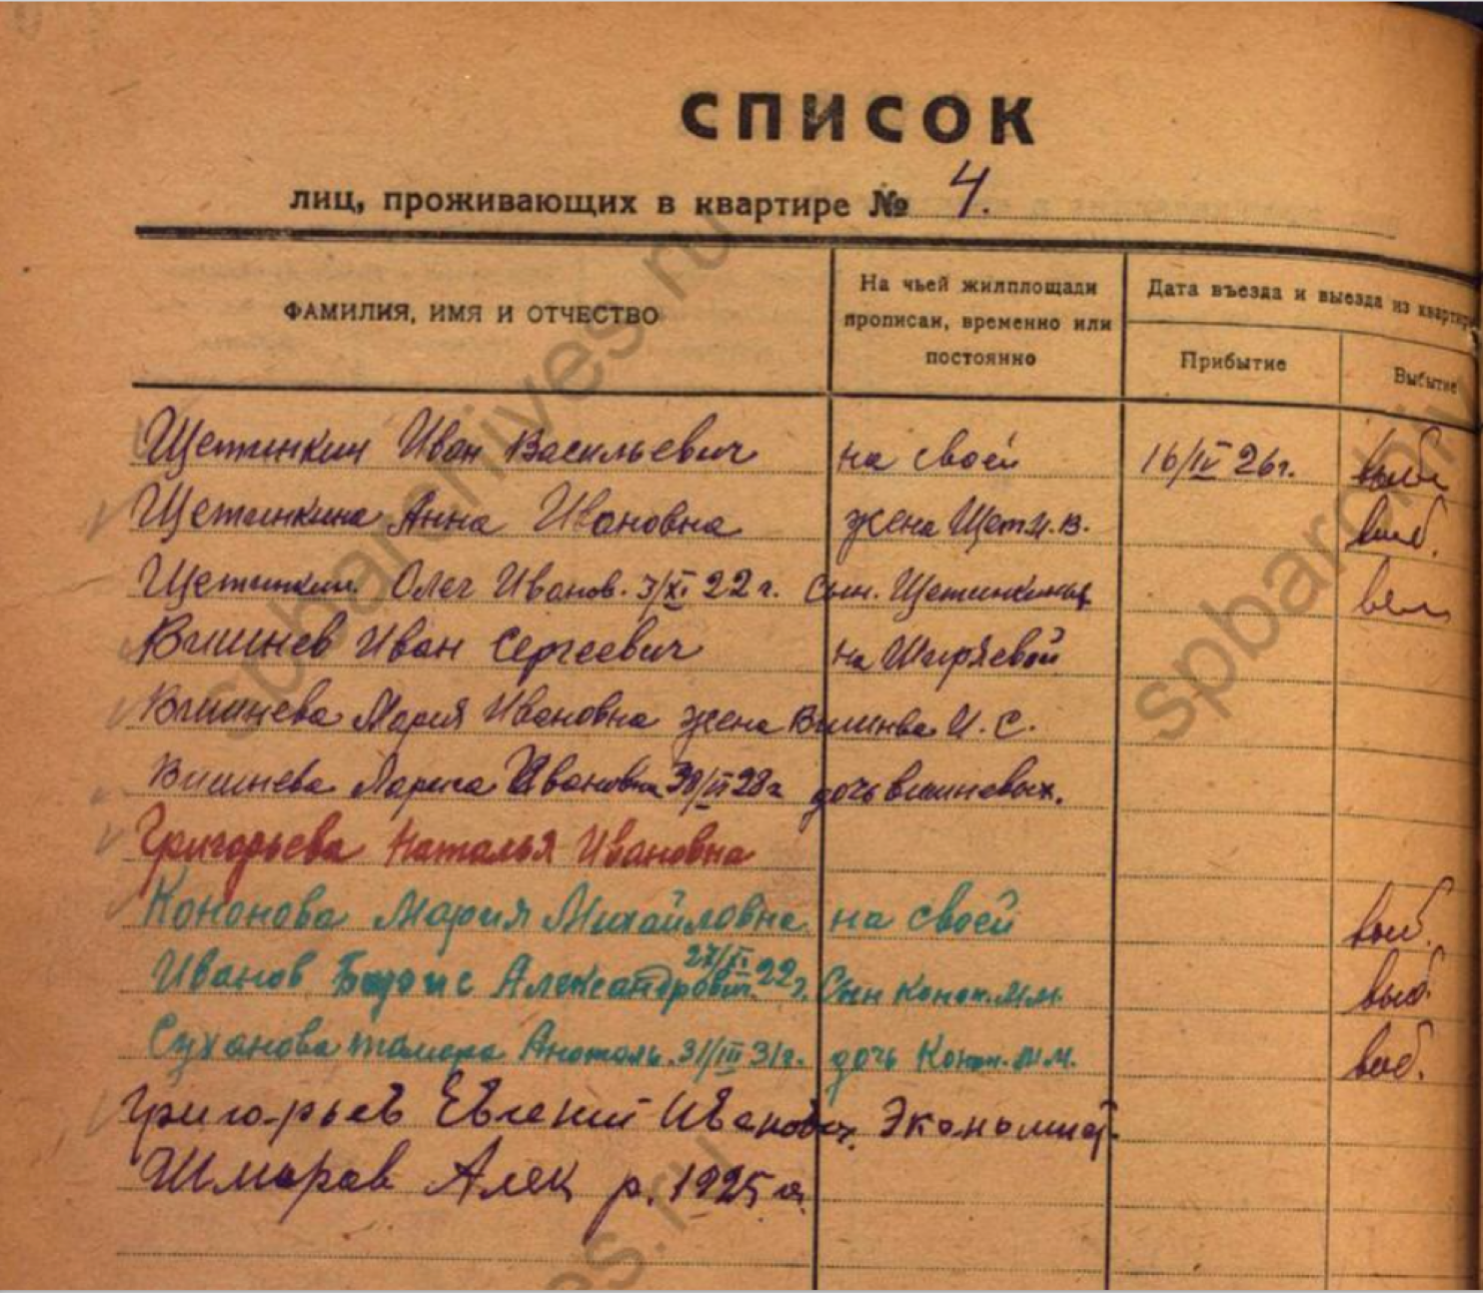 СПИСОК
лиц, проживающих в квартире № 4.
ФАМИЛИЯ, ИМЯ И ОТЧЕСТВО
На чьей жилплощади
прописан, временно или
постоянно
Дата въезда и выезда из квартиры
Прибытие
Выбытие
Щетинкин Иван Васильевич на своей 16/IV 26г. выб
Щетинкина Анна Ивановна жена Щет. И. В. выб.
Щетинкин Олег Иванов. 3/XI 22 г. Сын. Щетинкиных
Вишнев Иван Сергеевич на Ширяевой
Вишнева Мария Ивановна жена Вишнва И. С.
Вишнева Лариса Ивановна 28г дочь вишневых.
Григорьева Наталья Ивановна
Кононова Мария Михайловна на своей выб.
27/XI 22
Иванов Борис Александрович г. Сын Конон. М.М. выб.
Суханова тамара Анатоль. 31/III 31г. дочь Конон. М.М. выб.
Григорьев Евгений Иванович. Экономист
Шмаров Алек р. 1925 г.
spbarchives.ru
spbarchiv
es.ru